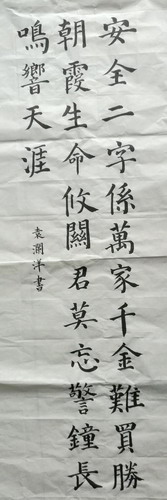 安全二字係萬家千金難買勝
朝霞生命攸關君莫忘警鐘長
鳴響天涯
袁澗洋書